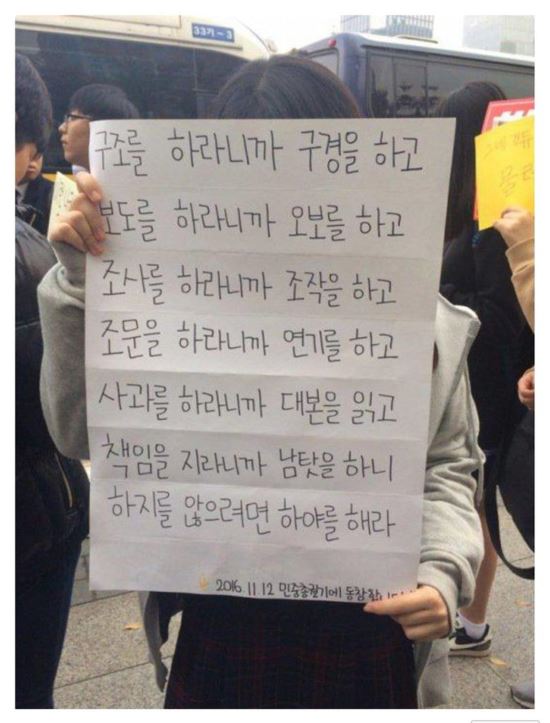 33가-3
구조를 하라니까 구경을 하고
보도를 하라니까 오보를 하고
조사를 하라니까 조작을 하고
조문을 하라니까 연기를 하고
사과를 하라니까 대본을 읽고
책임을 지라니까 남탓을 하니
하지를 않으려면 하야를 해라
2016.11.12 민중총궐기에 동참합니다